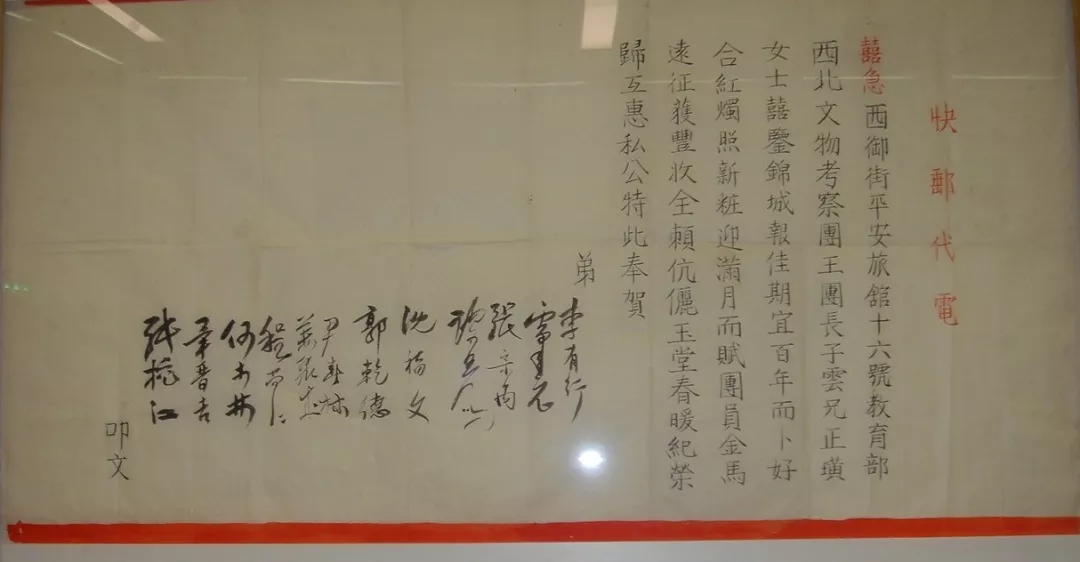 快郵代電
囍急西御街平安旅舘十六號教育部
西北文物考察團王團長子雲兄正璜
女士囍鑒錦城報佳期宜百年而卜好
合紅燭照新粧迎滿月而賦團員金馬
遠征獲豐收全賴伉儷玉堂春暖紀榮
歸互惠私公特此奉賀
弟
李有行
雷圭元
張宗禹
沈福文
郭乾德
程尚仁
何木林
章晋吉
張挺江
叩文